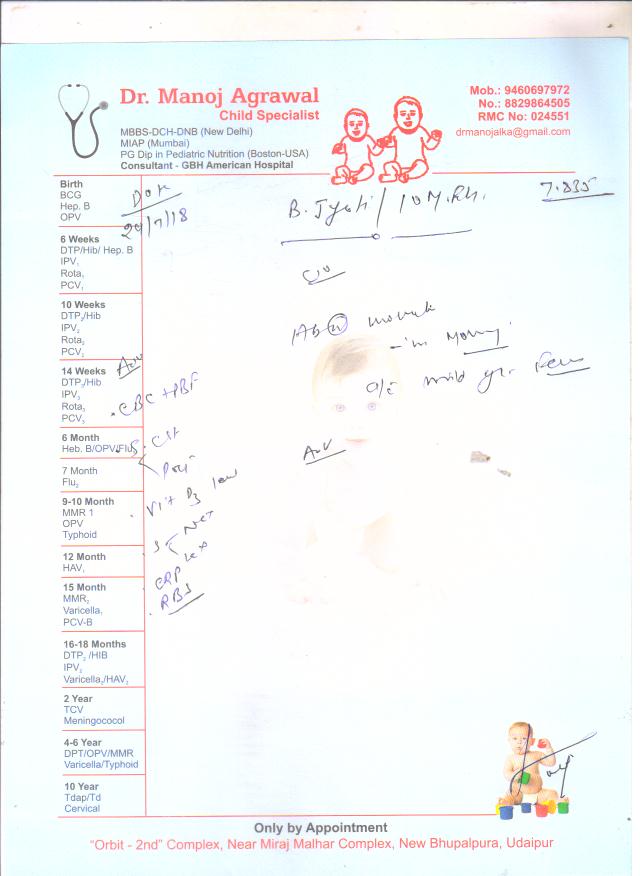 Dr. Manoj Agrawal
Child Specialist
MBBS-DCH-DNB (New Delhi)
MIAP (Mumbai)
PG Dip in Pediatric Nutrition (Boston-USA)
Consultant - GBH American Hospital
Mob.: 9460697972
No.: 8829864505
RMC No: 024551
drmanojalka@gmail.com
Birth
BCG
Hep. B
OPV
6 Weeks
DTP/Hib/ Hep. B
IPV₁
Rota₁
PCV₁
10 Weeks
DTP₂/Hib
IPV₂
Rota₂
PCV₂
14 Weeks
DTP₃/Hib
IPV₃
Rota₃
PCV₃
6 Month
Heb. B/OPV/Flu₁
7 Month
Flu₂
9-10 Month
MMR 1
OPV
Typhoid
12 Month
HAV₁
15 Month
MMR₂
Varicella₁
PCV-B
16-18 Months
DTP₂ /HIB
IPV₂
Varicella₂/HAV₂
2 Year
TCV
Meningococol
4-6 Year
DPT/OPV/MMR
Varicella/Typhoid
10 Year
Tdap/Td
Cervical
B. Jyoti / 10 M.
c/o
o/e mild
Adv
Adv
CBC + PBF
Vit D3
CRP
RBS
Only by Appointment
"Orbit - 2nd" Complex, Near Miraj Malhar Complex, New Bhupalpura, Udaipur